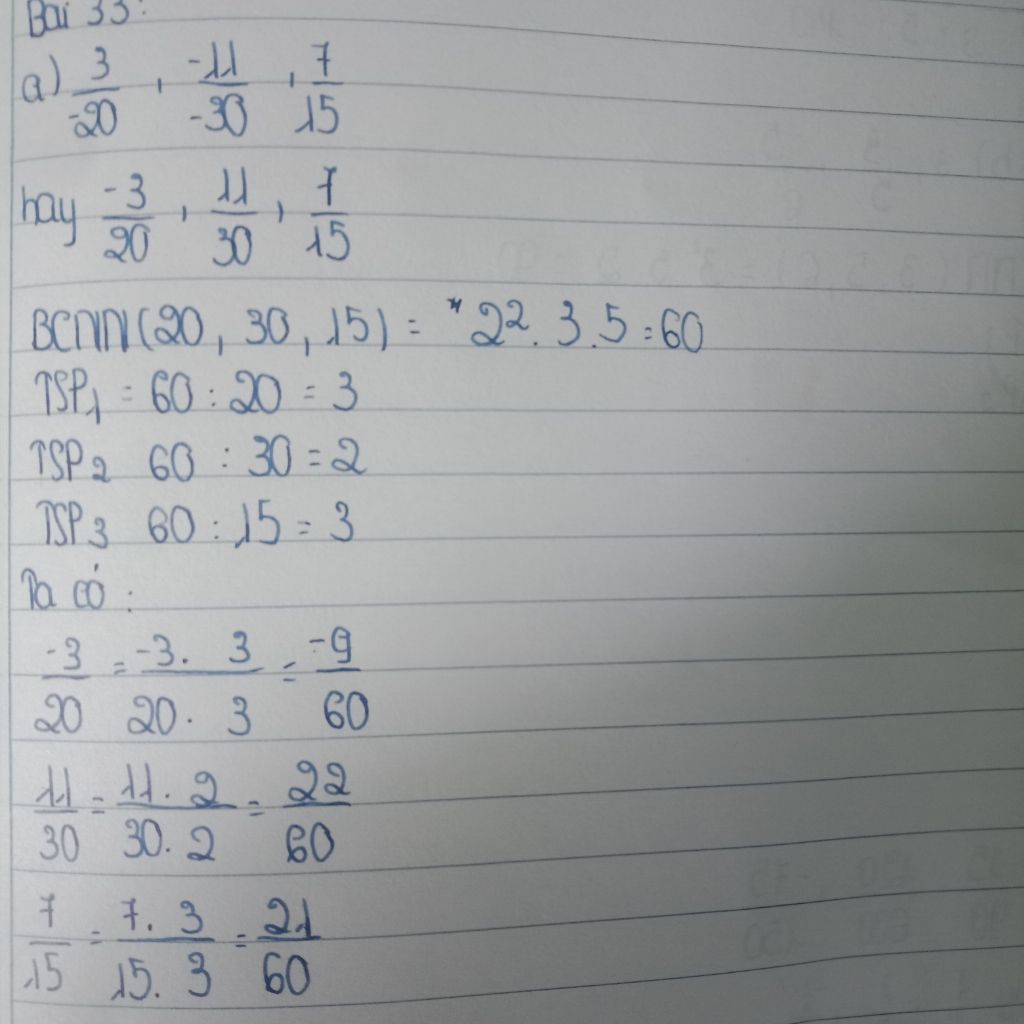 Bài 33:
a) 3/-20 , -11/-30 , 7/15
hay -3/20 , 11/30 , 7/15
BCNN(20, 30, 15) = 2². 3. 5 = 60
TSP1 = 60 : 20 = 3
TSP2 60 : 30 = 2
TSP3 60 : 15 = 3
Ta có :
-3/20 = -3. 3/20. 3 = -9/60
11/30 = 11. 2/30. 2 = 22/60
7/15 = 7. 3/15. 3 = 21/60